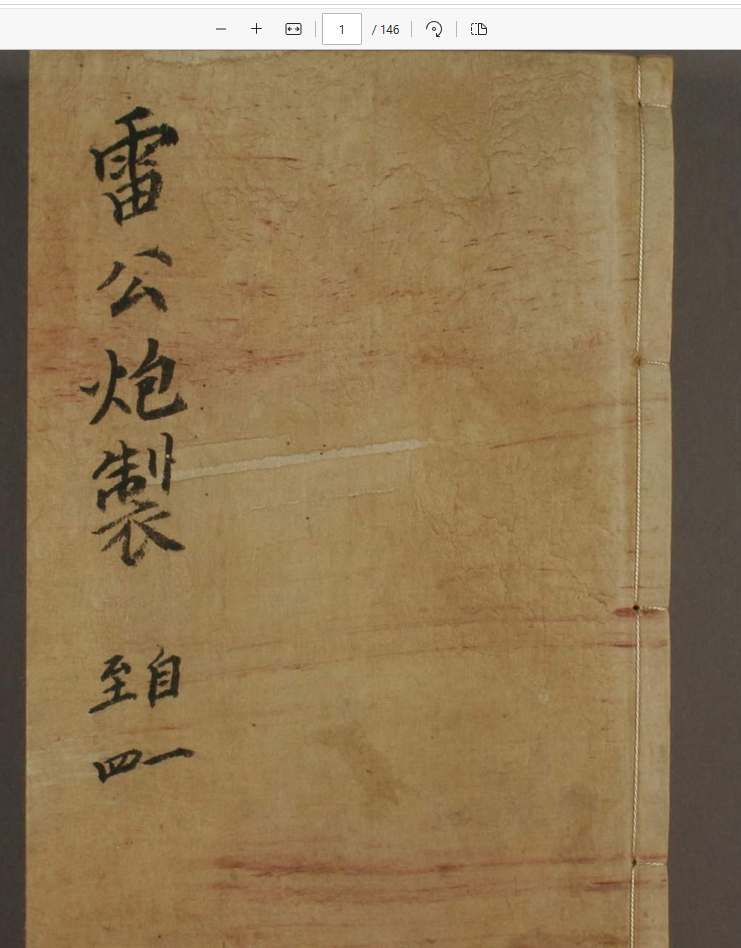 1
/ 146
雷公炮製
自一
至四